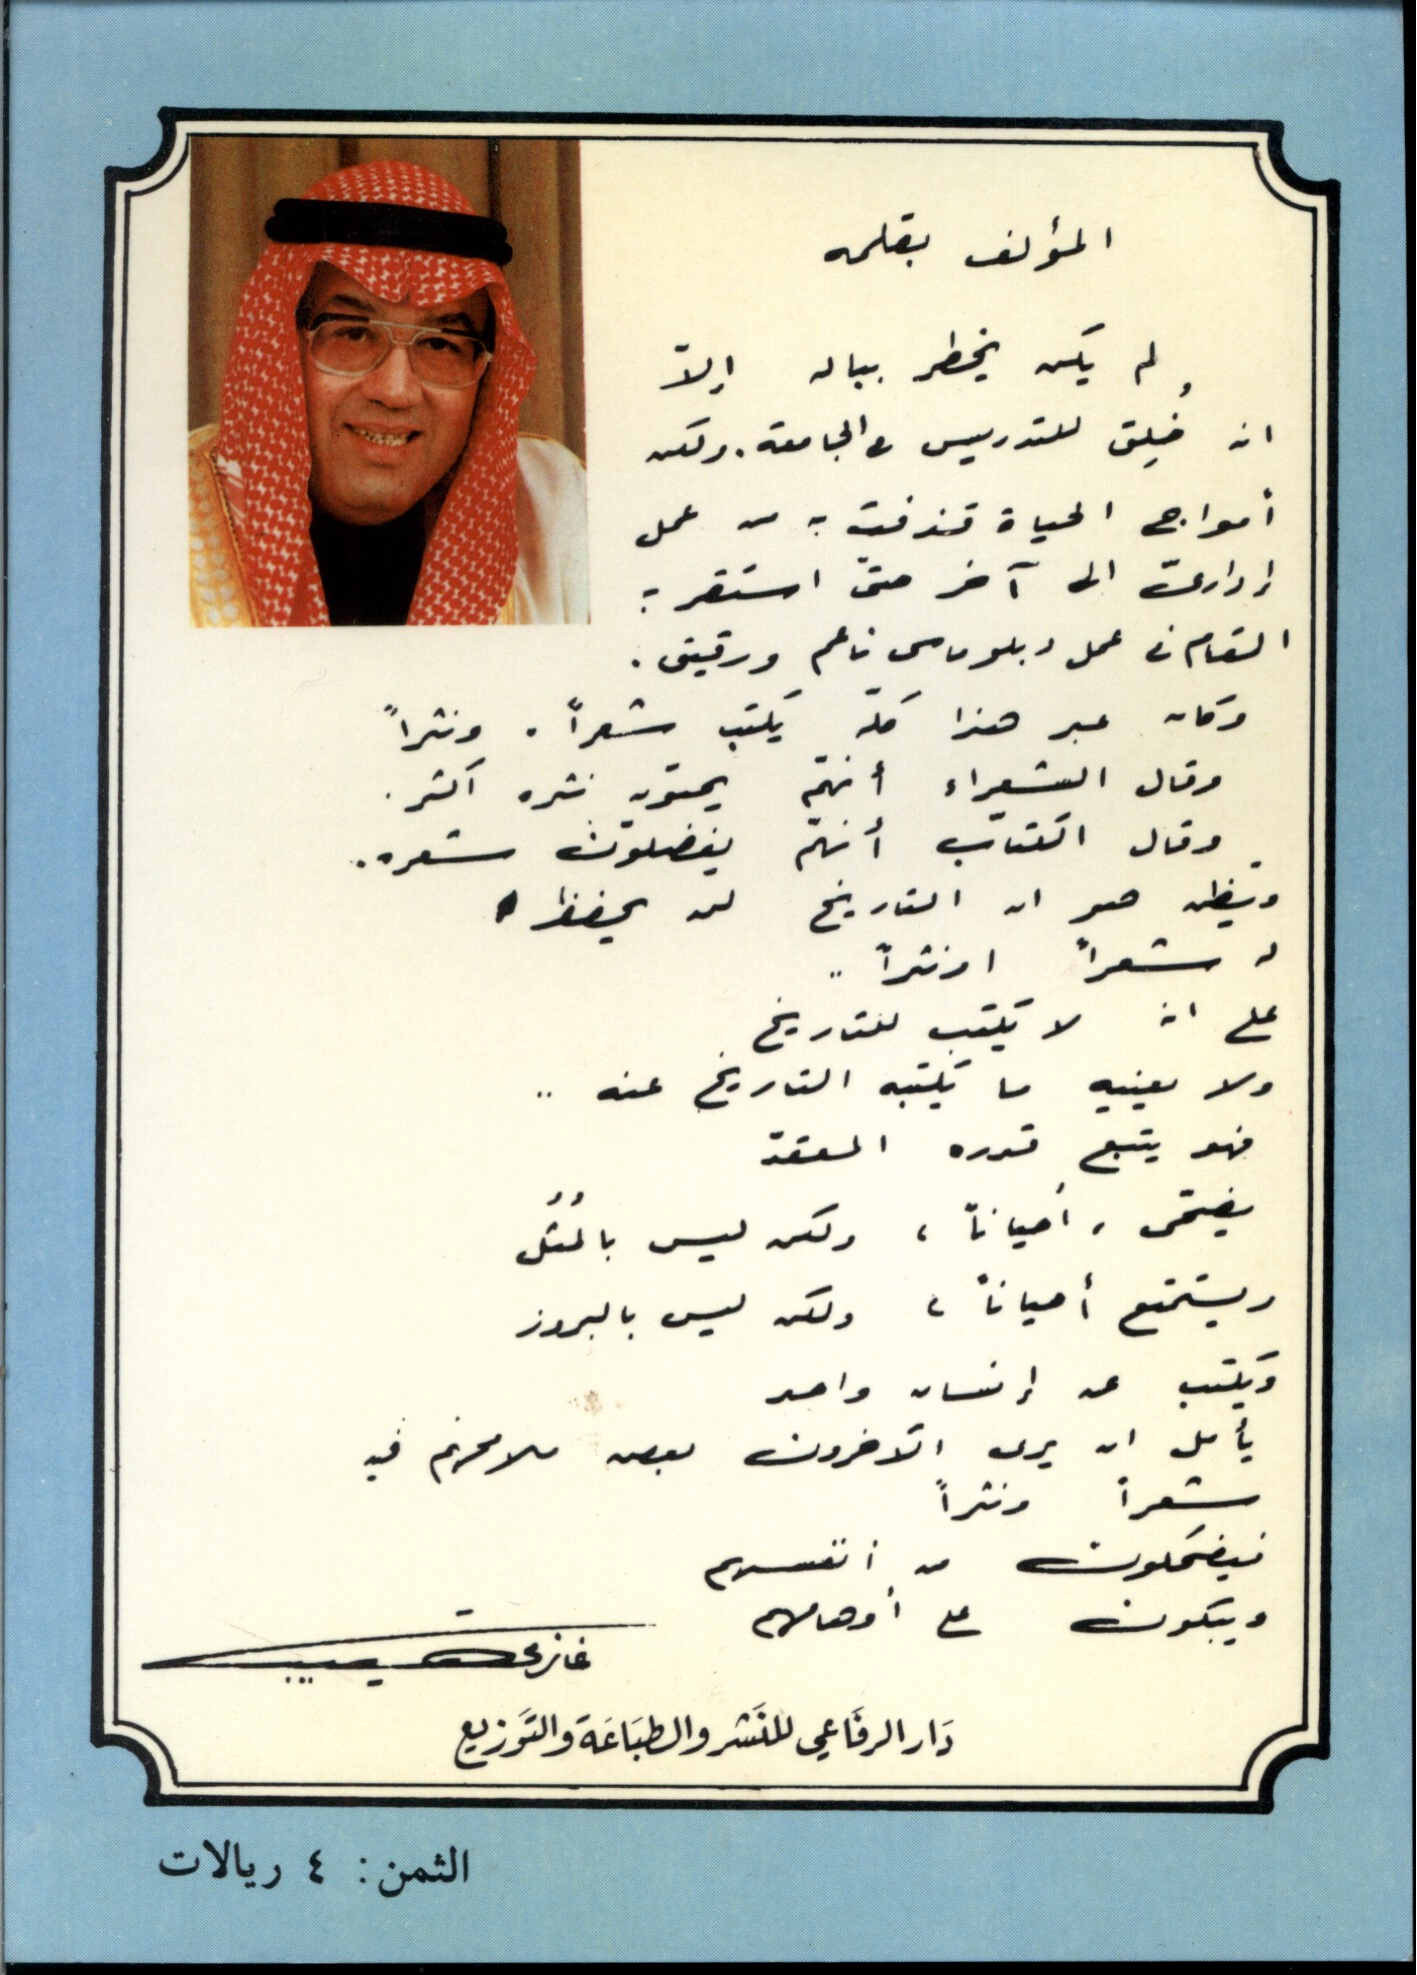 المؤلف بقلمه
لم يكن يخطر بباله إلاّ
انه خُلِق للتدريس في الجامعة. ولكن
أمواج الحياة قذفت به من عمل
إداريّ الى آخر حتى استقر به
المقام في عمل دبلوماسي ناعم ورقيق.
وكان عبر هذا كلّه يكتب شعراً. ونثراً
وقال الشعراء أنهّم يحبّون نثره اكثر.
وقال الكتّاب أنهّم يفضلون شعره.
ويظن هو ان التاريخ لن يحفظ
له شعراً او نثراً ..
على انه لا يكتب للتاريخ
ولا يعنيه ما يكتبه التاريخ عنه ..
فهو يتبع قدره المعقّد
يضحّى، أحياناً، ولكن ليس بالمُثُل
ويستمتع أحياناً، ولكن ليس بالبروز
ويكتب عن إنسان واحد
يأمل ان يرى الآخرون بعض ملامحهم فيه
شعراً ونثراً
فيضحكون من أنفسهم
ويبكون على أوهامهم
غازي القصيبي
دَار الرفَاعي للنَشر والطبَاعَة والتَوزيع
الثمن: ٤ ريالات